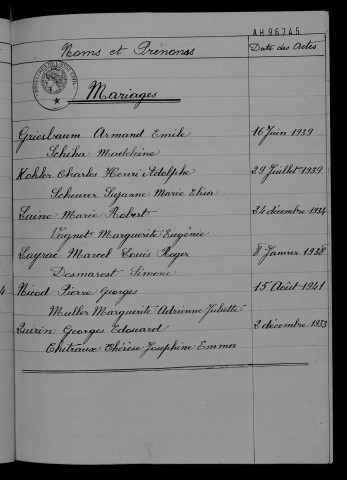 AH96745
Noms et Prénoms
Date des Actes
Mariages
Griesbaum Armand Emile 16 Juin 1939
Schiha Madeleine
Kohler Charles Henri Adolphe 29 Juillet 1939
Scheurer Suzanne Marie Elisa
Lainé Marie Robert 24 décembre 1934
Voignet Marguerite Eugénie
Layrac Marcel Louis Roger 8 Janvier 1938
Desmarest Simone
Nicod Pierre Georges 15 Août 1941
Muller Marguerite Adrienne Juliette
Quirin Georges Edouard 2 décembre 1933
Thérèse Josephine Emma